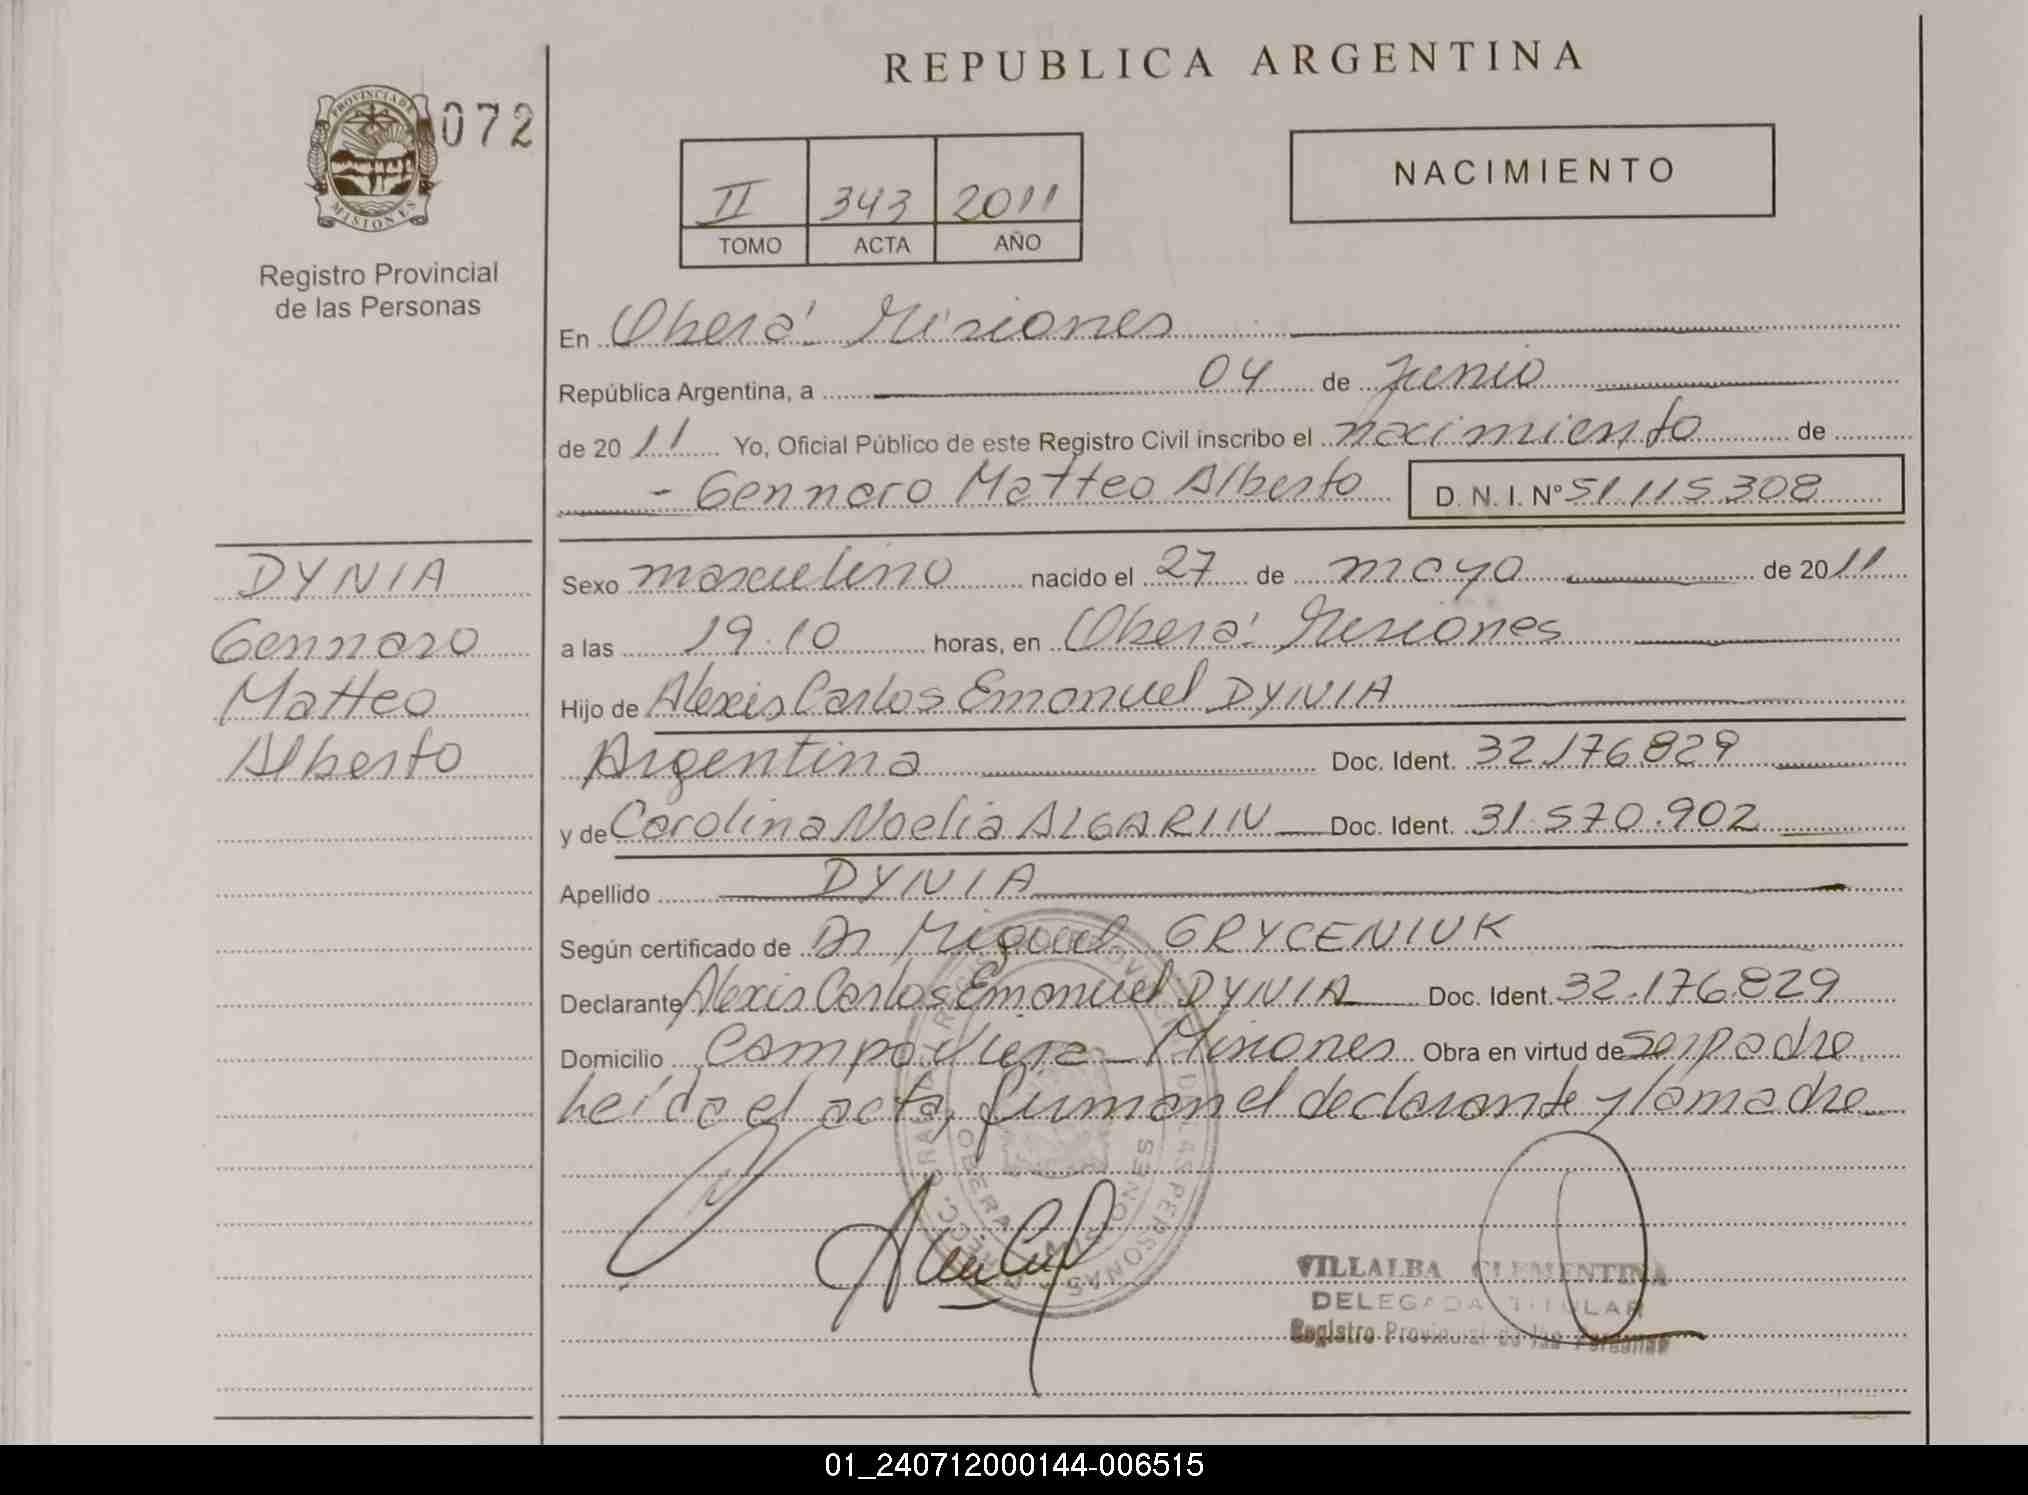 REPUBLICA ARGENTINA
PROVINCIA DE
MISIONES
072
Registro Provincial
de las Personas
II 343 2011
TOMO ACTA AÑO
NACIMIENTO
En Oberá Misiones
República Argentina, a 04 de Junio
de 2011 Yo, Oficial Público de este Registro Civil inscribo el nacimiento de
- Gennaro Matteo Alberto D. N. I. Nº 51.115.308
DYNIA
Gennaro
Matteo
Alberto
Sexo masculino nacido el 27 de mayo de 2011
a las 19.10 horas, en Oberá Misiones
Hijo de Alexis Carlos Emanuel DYNIA
Argentina Doc. Ident. 32.176.829
y de Carolina Noelia ALGARIN Doc. Ident. 31.570.902
Apellido DYNIA
Según certificado de Dr Miguel GRYCENIUK
Declarante Alexis Carlos Emanuel DYNIA Doc. Ident. 32.176.829
Domicilio Campo Viera - Misiones Obra en virtud de ser padre
Leída el acta, firman el declarante y la madre
OBERA MISIONES
DE LAS PERSONAS
VILLALBA CLEMENTINA
DELEGADA TITULAR
Registro Provincial de las Personas
01_240712000144-006515